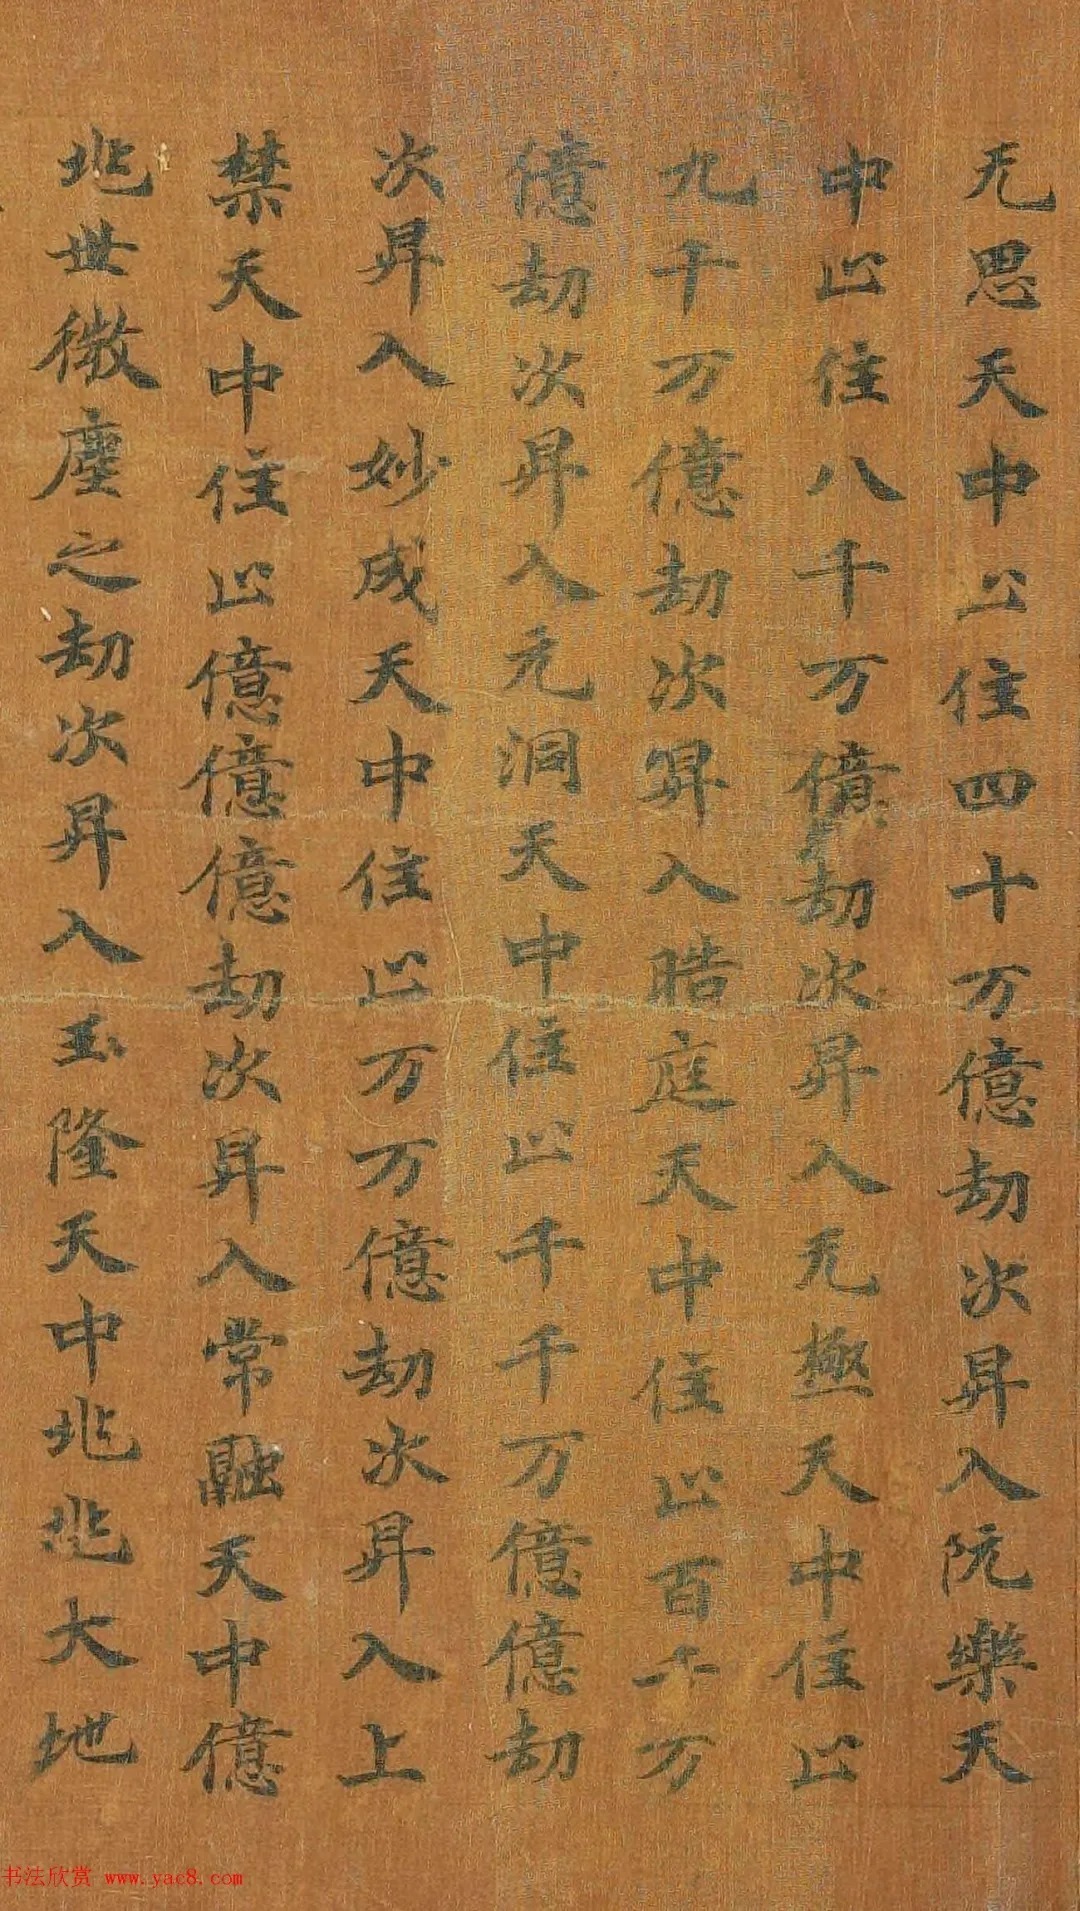 无思天中止住四十万億劫次昇入阮樂天
中止住八千万億劫次昇入无極天中住止
九千万億劫次昇入皓庭天中住止百千万
億劫次昇入元洞天中住止千千万億億劫
次昇入妙成天中住止万万億劫次昇入上
禁天中住止億億億劫次昇入常融天中億
兆世微塵之劫次昇入玉隆天中兆兆大地
书法欣赏 www.yac8.com